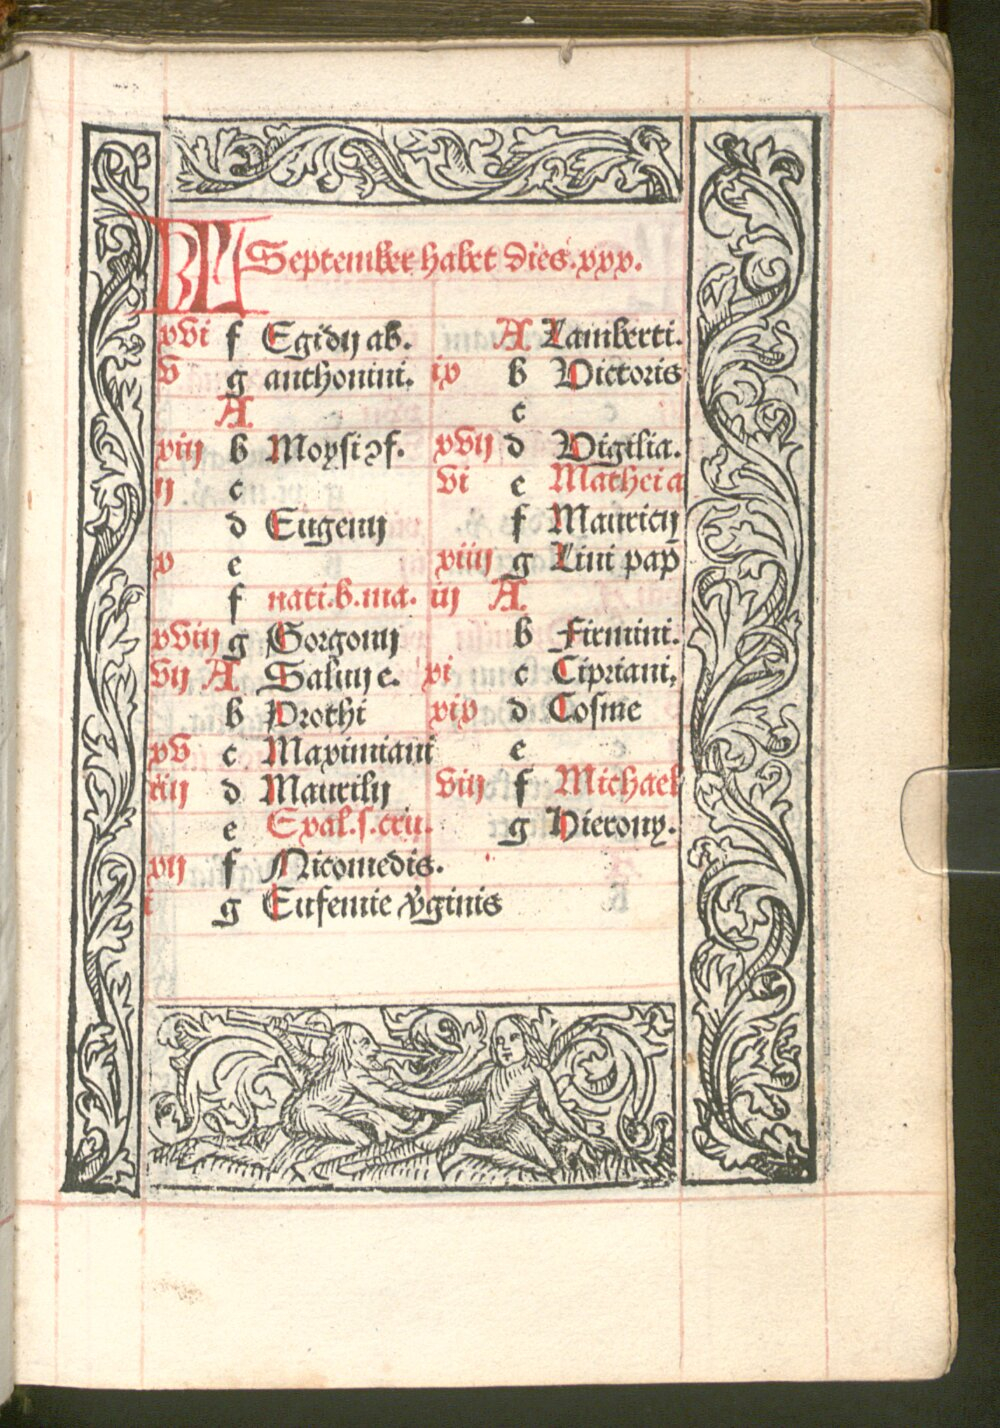 KL September habet dies.xxx.
xvi f Egidij ab.
v g anthonini.
A
xiij b Moysi ꝓf.
ij c
d Eugenij
x e
f nati.b.ma.
xviij g Gorgonij
vij A Saluij e.
b Prothi
xv c Maximiani
iiij d Maurilij
e Exal.s.cru.
xij f Nicomedis.
i g Eufemie v̾ginis
A Lamberti.
ix b Victoris
c
xvij d Vigilia.
vi e Mathei a
f Mauricij
xiiij g Lini pap̄
iij A
b Firmini.
xi c Cipriani,
xix d Cosme
e
viij f Michael
g Hierony.